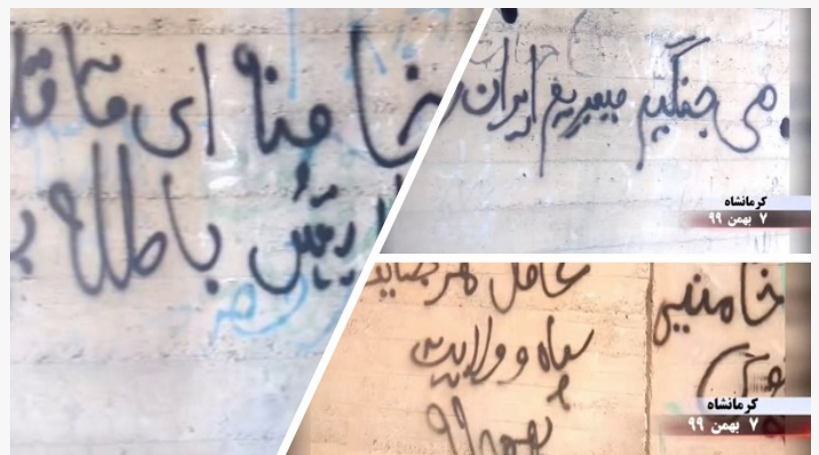 خامنه ای قاتله
ولایتش باطله
می جنگیم میمیریم ایران
کرمانشاه
۷ بهمن ۹۹
خامنیه
عامل هر جنایت
سپاه و ولایت
بهمن ۹۹
کرمانشاه
۷ بهمن ۹۹